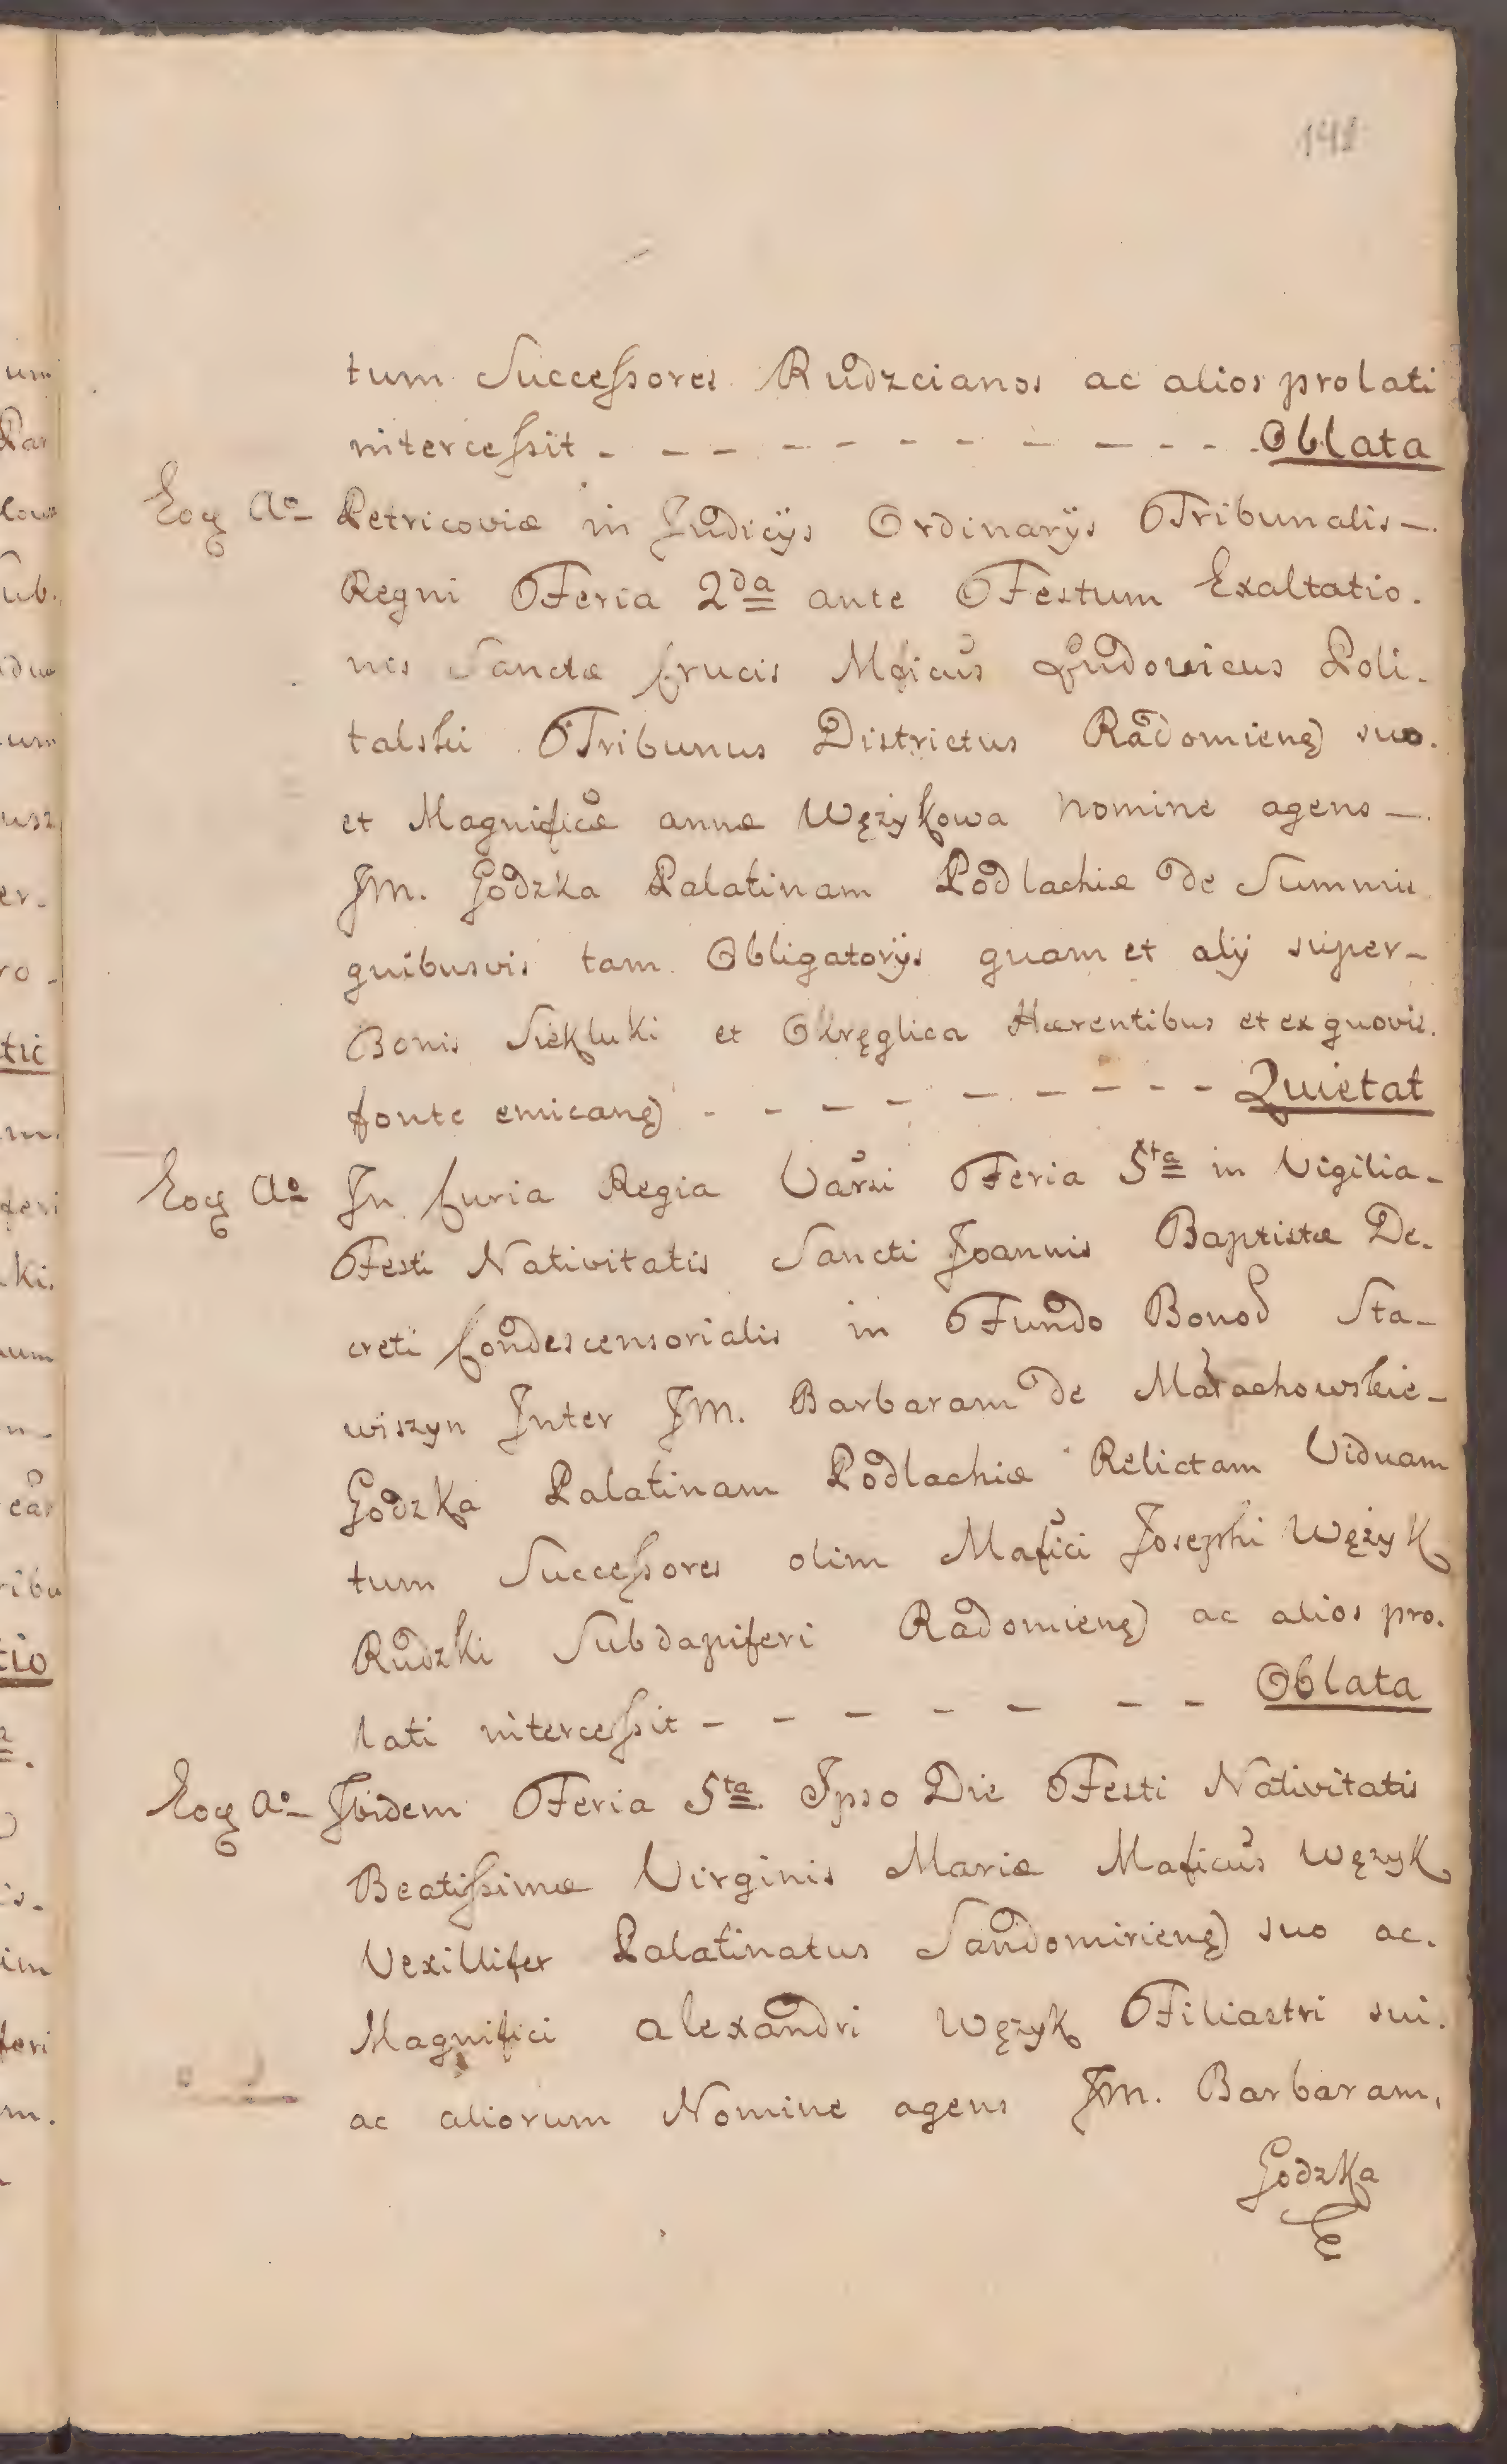 141
tum Successores Rudzcianos ac alios prolati
intercessit - - - - - - - - - - Oblata
Eoq Aº Petricoviæ in Judicijs Ordinarijs Tribunalis -
Regni Feria 2da ante Festum Exaltatio.
nis Sanctæ Crucis Mficus Ludovicus Poli.
talski Tribunus Districtus Radomieng) suo.
et Magnificæ annæ Wężykowa Nomine agens -
JM. Godzka Palatinam Podlachiæ de Summis
quibusvis tam Obligatorijs quam et alij super-
Bonis Siekluki et Okręglica Hærentibus et ex quovis.
fonte emicang) - - - - - - - - - Quietat
Eoq Aº In Curia Regia Varsi Feria 5ta in Vigilia-
Festi Nativitatis Sancti Joannis Baptistæ De-
creti Condescensorialis in Fundo Bonod Sta-
wiszyn Inter JM. Barbaram de Małachowskie-
Godzka Palatinam Podlachiæ Relictam Viduam
tum Successores olim Mafici Josephi Wężyk
Rudzki Subdapiferi Radomieng) ac alios pro.
lati intercessit - - - - - - - Oblata
Eoq Aº Ibidem Feria 5ta Ipso Die Festi Nativitatis
Beatissimæ Virginis Mariæ Maficus Wężyk
Vexillifer Palatinatus Sandomirieng) suo ac.
Magnifici alexandri Wężyk Filiastri sui.
ac aliorum Nomine agens JM. Barbaram,
Godzka